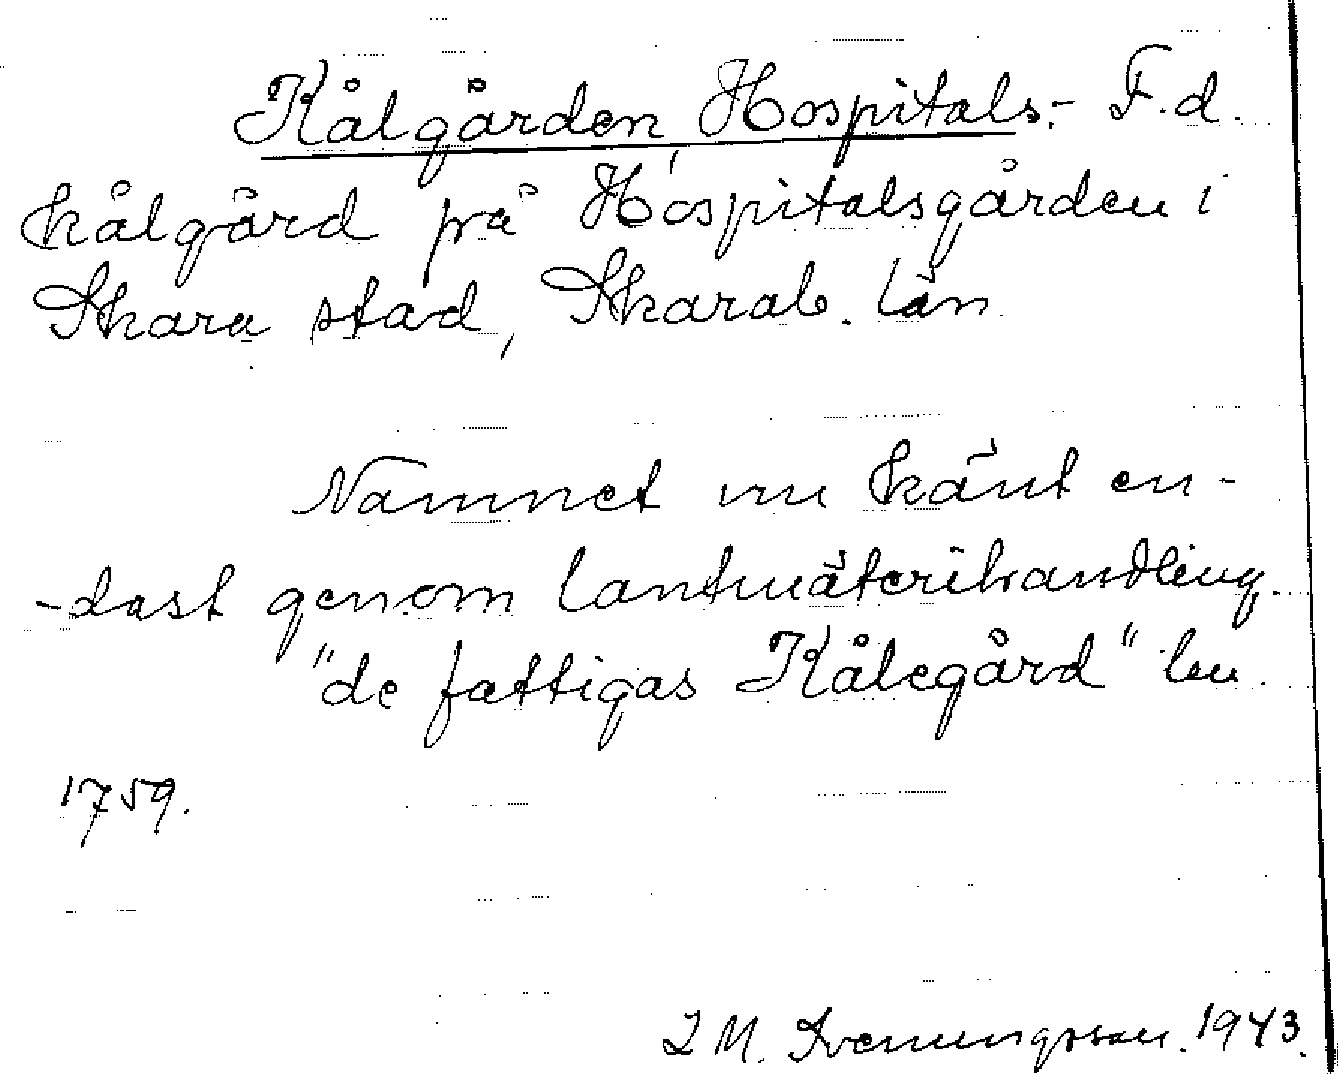 Kålgården, Hospitals.- F.d.
kålgård på Hospitalsgården i
Skara stad, Skarab. län
Namnet nu känt en-
-dast genom lantmäterihandling.
"de fattigas Kålegård" lm
1759.
I M. Svenungsson. 1943.